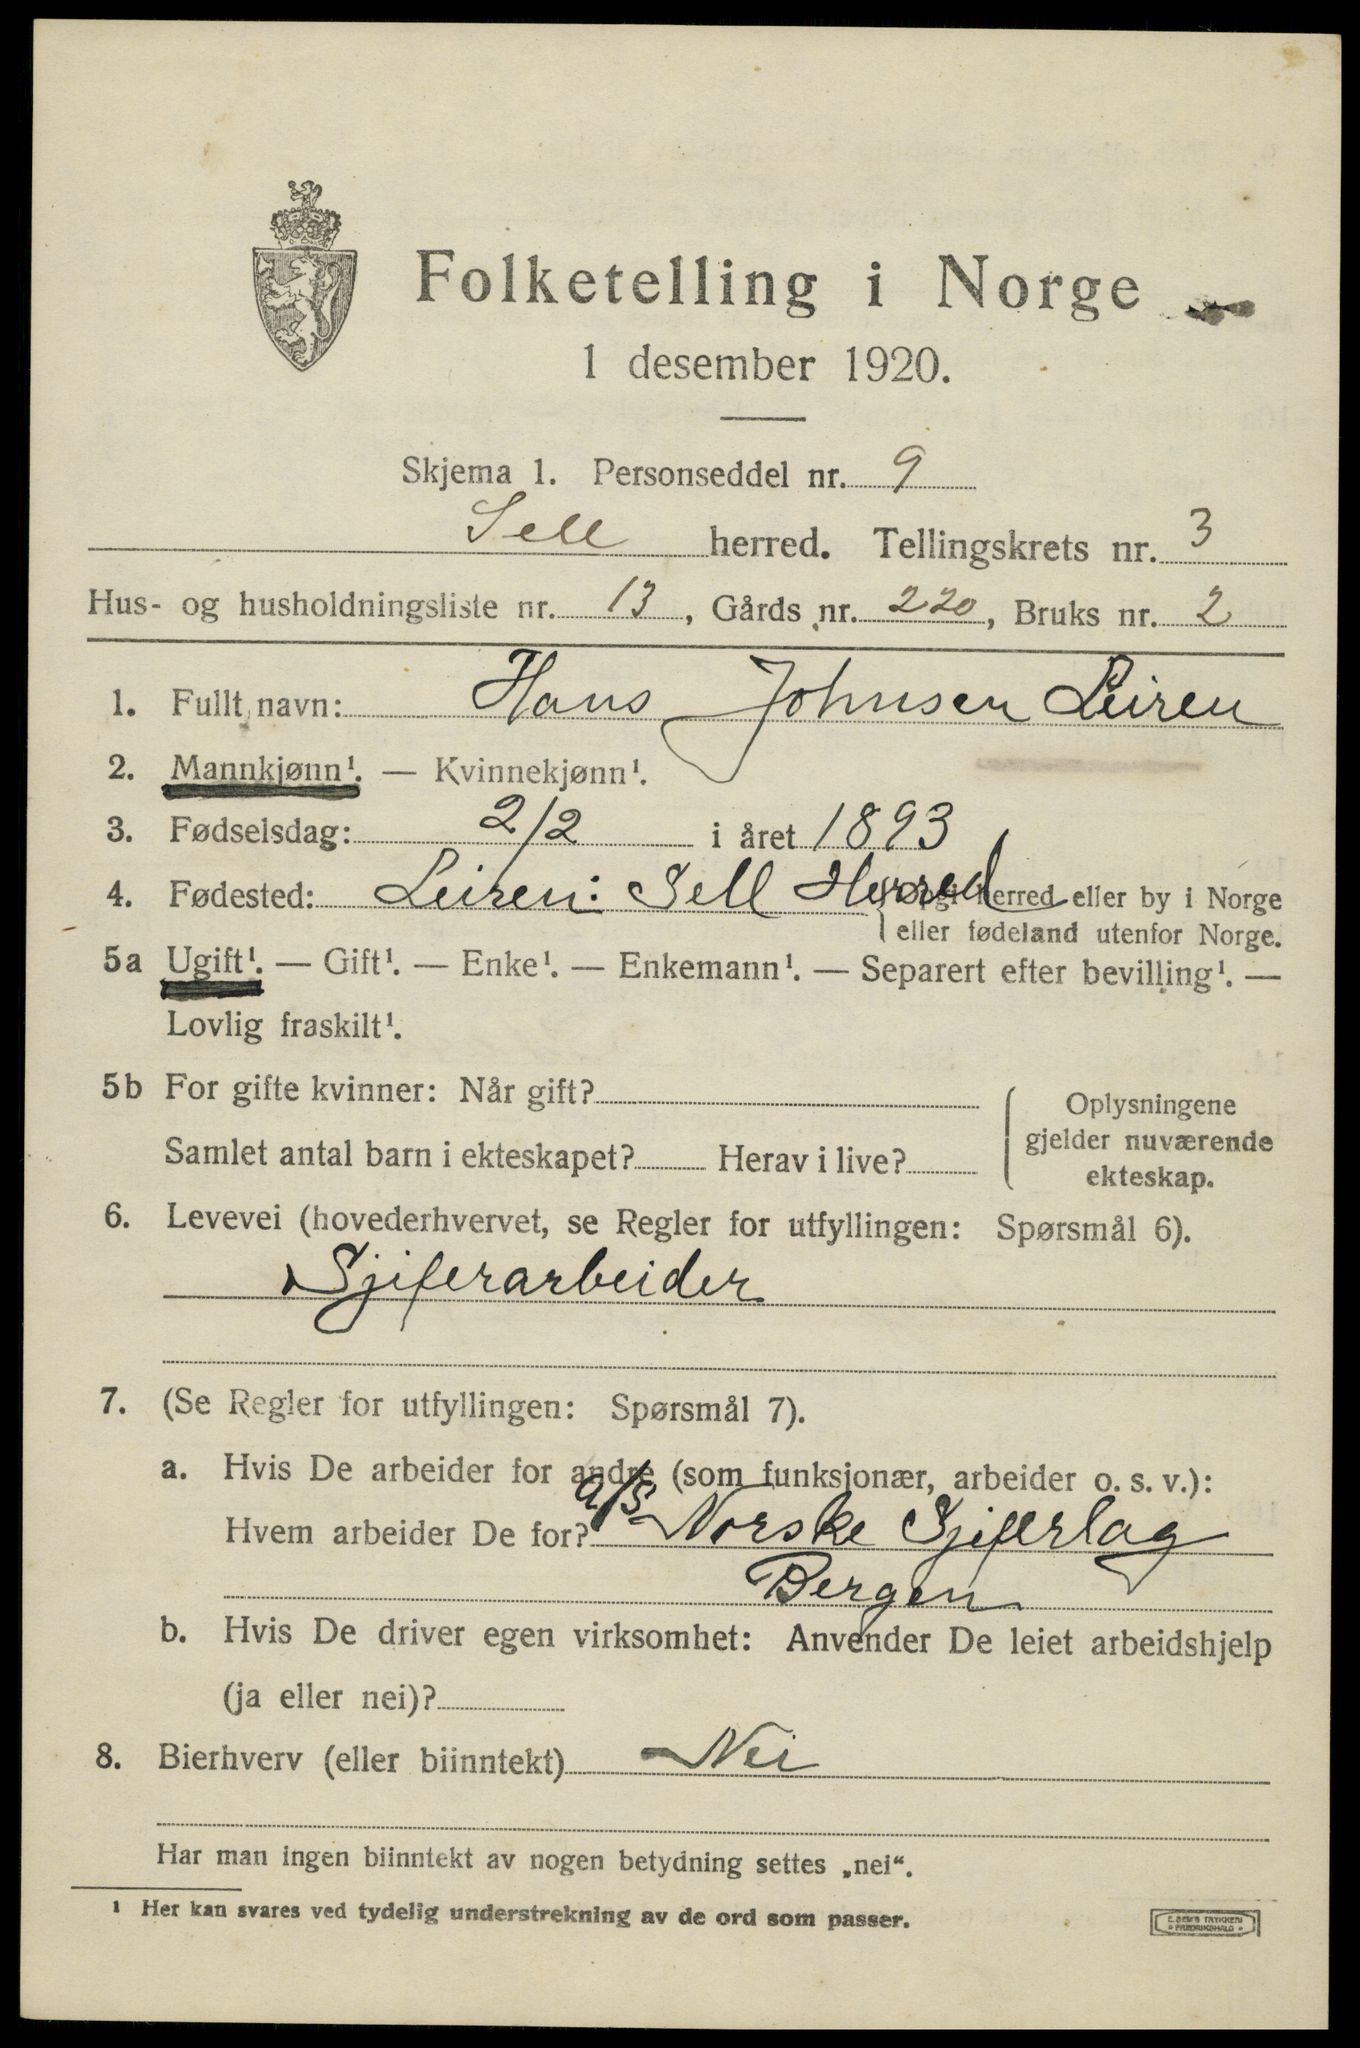 Folketelling i Norge
1 desember 1920.
Skjema 1. Personseddel nr. 9
Sell herred. Tellingskrets nr. 3
Hus- og husholdningsliste nr. 13, Gårds nr. 220, Bruks nr. 2
1. Fullt navn: Hans Johnsen Leiren
2. Mannkjønn¹. — Kvinnekjønn¹.
3. Fødselsdag: 2/2 i året 1893
4. Fødested: Leiren: Sell Herred {Opgi herred eller by i Norge
eller fødeland utenfor Norge.
5a Ugift¹. — Gift¹. — Enke¹. — Enkemann¹. — Separert efter bevilling¹. —
Lovlig fraskilt¹.
5b For gifte kvinner: Når gift?
Samlet antal barn i ekteskapet? Herav i live?
Oplysningene
gjelder nuværende
ekteskap.
6. Levevei (hovederhvervet, se Regler for utfyllingen: Spørsmål 6).
Sjiferarbeider
7. (Se Regler for utfyllingen: Spørsmål 7).
a. Hvis De arbeider for andre (som funksjonær, arbeider o. s. v.):
Hvem arbeider De for? a/s Norske Sjiferlag
Bergen
b. Hvis De driver egen virksomhet: Anvender De leiet arbeidshjelp
(ja eller nei)?
8. Bierhverv (eller biinntekt) Nei
Har man ingen biinntekt av nogen betydning settes „nei“.
¹ Her kan svares ved tydelig understrekning av de ord som passer.
E. SEM'S TRYKKERI
FREDRIKSHALD